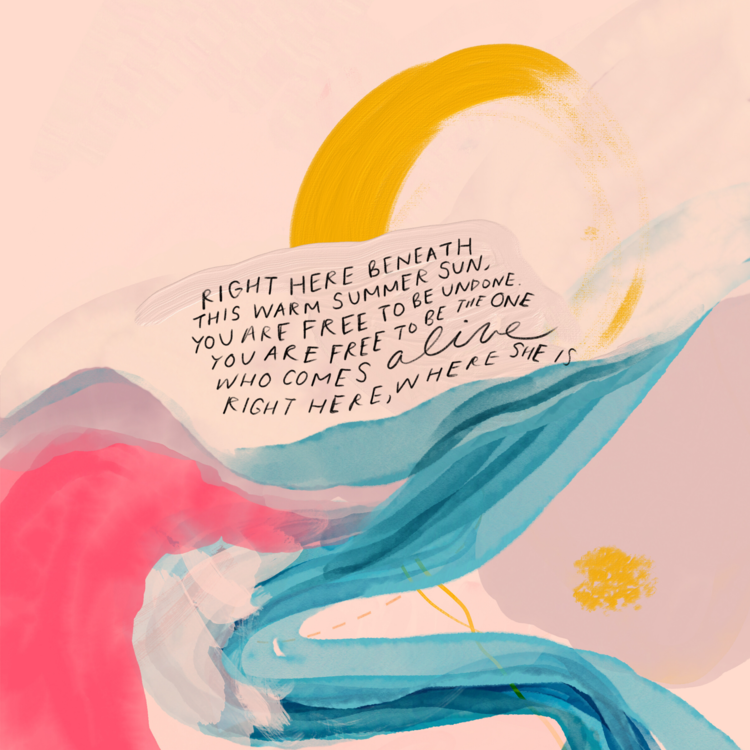 RIGHT HERE BENEATH
THIS WARM SUMMER SUN,
YOU ARE FREE TO BE UNDONE.
YOU ARE FREE TO BE THE ONE
WHO COMES alive
RIGHT HERE, WHERE SHE IS